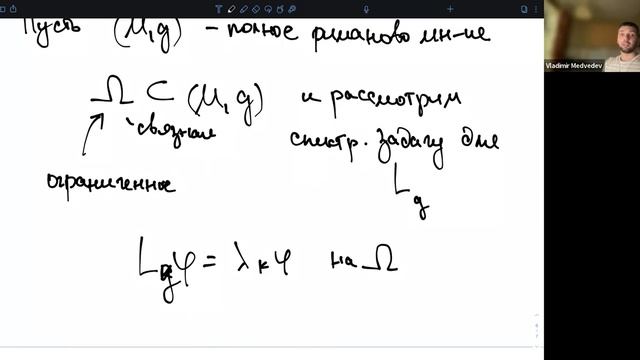 Пусть (M, g) - полное риманово мн-ие
Ω ⊂ (M, g) и рассмотрим
связная спектр. задачу для
ограниченное L_g
L_g φ = λ_k φ на Ω
Vladimir Medvedev